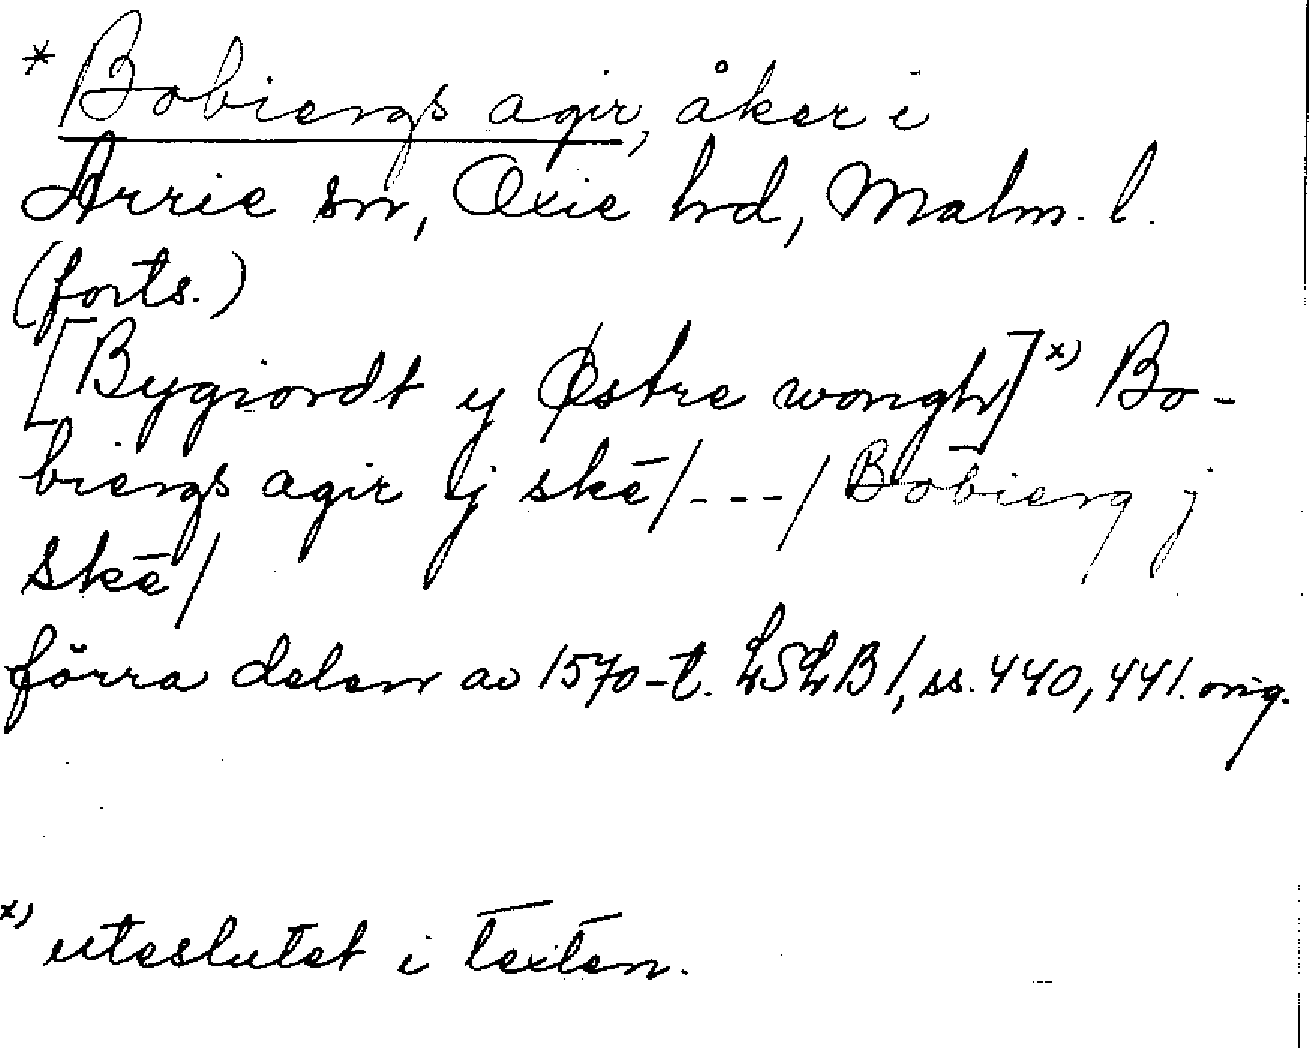 * Bobiergs agir, åker i
Arrie sn, Oxie hd, Malm. l.
(forts.)
[Bygiordt y Østre wongh]ˣ⁾ Bo-
biergs agir ij skē/---/Bobierg j
skē/
förra delen av 1570-t. LSLB1, ss. 440, 441. orig.
ˣ⁾ uteslutet i texten.